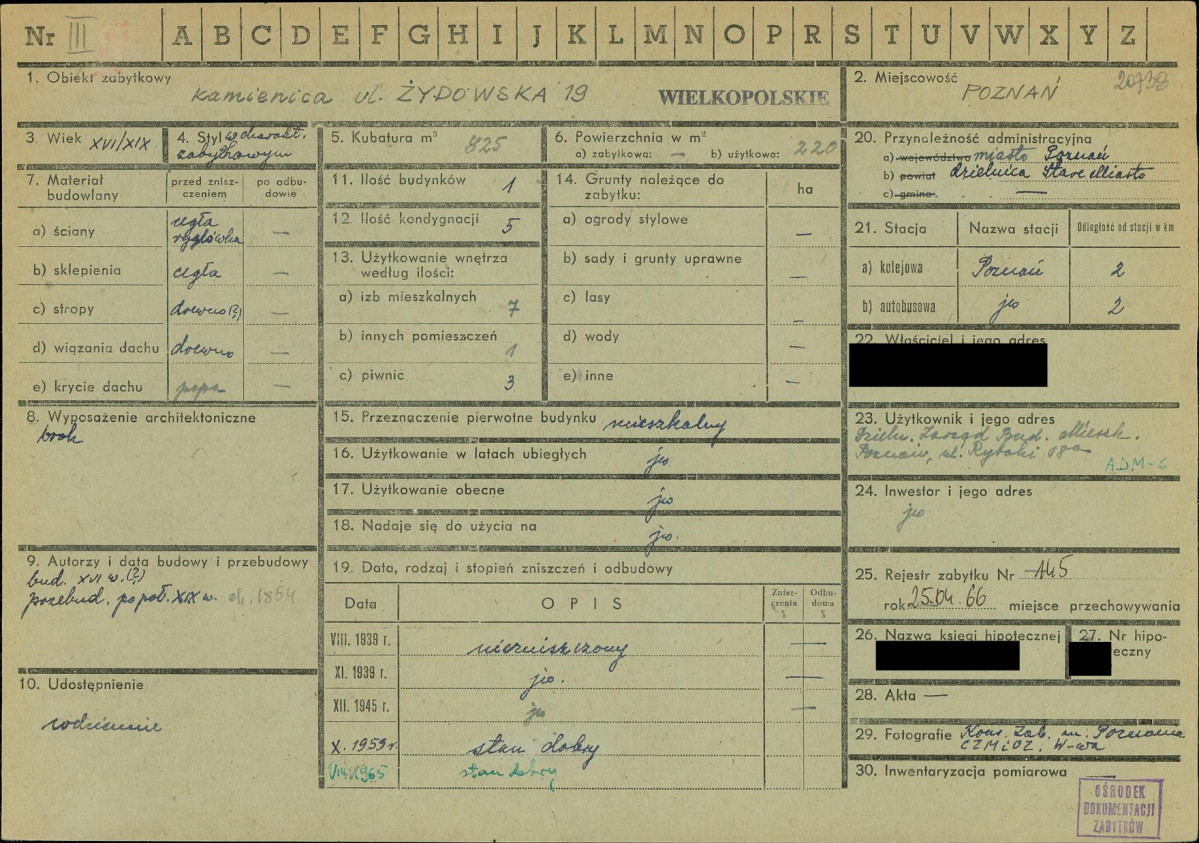 Nr III A B C D E F G H I J K L M N O P R S T U V W X Y Z
1. Obiekt zabytkowy
kamienica ul. ŻYDOWSKA 19 WIELKOPOLSKIE
2. Miejscowość 20738
POZNAŃ
3. Wiek XVI/XIX
4. Styl w charakt.
zabytkowym
5. Kubatura m³ 825
6. Powierzchnia w m²
a) zabytkowa: — b) użytkowa: 220
7. Materiał budowlany
przed zniszczeniem
po odbudowie
a) ściany cegła —
ryglówka
b) sklepienia cegła —
c) stropy drewno (?) —
d) wiązania dachu drewno —
e) krycie dachu papa —
8. Wyposażenie architektoniczne
brak
9. Autorzy i data budowy i przebudowy
bud. XVI w. (?)
przebud. po poł. XIX w. ok. 1854
10. Udostępnienie
codziennie
11. Ilość budynków 1
12. Ilość kondygnacji 5
13. Użytkowanie wnętrza
według ilości:
a) izb mieszkalnych 7
b) innych pomieszczeń 1
c) piwnic 3
14. Grunty należące do
zabytku: ha
a) ogrody stylowe —
b) sady i grunty uprawne —
c) lasy —
d) wody —
e) inne —
15. Przeznaczenie pierwotne budynku mieszkalny
16. Użytkowanie w latach ubiegłych jw
17. Użytkowanie obecne jw
18. Nadaje się do użycia na jw.
19. Data, rodzaj i stopień zniszczeń i odbudowy
Data OPIS Zniszczenia % Odbudowa %
VIII. 1939 r. niezniszczony —
XI. 1939 r. jw. —
XII. 1945 r. jw —
X. 1959 r. stan dobry
VIII.1965 stan dobry
20. Przynależność administracyjna
a) województwo miasto Poznań
b) powiat dzielnica Stare Miasto
c) gmina —
21. Stacja Nazwa stacji Odległość od stacji w km
a) kolejowa Poznań 2
b) autobusowa jw 2
22. Właściciel i jego adres
23. Użytkownik i jego adres
Dzieln. Zarząd Bud. Mieszk.
Poznań, ul. Rybaki 18a
ADM-6
24. Inwestor i jego adres
jw
25. Rejestr zabytku Nr A145
rok 25.04.66 miejsce przechowywania
26. Nazwa księgi hipotecznej
27. Nr hipoteczny
28. Akta —
29. Fotografie Kons. Zab. m. Poznania
CZMiOZ. W-wa
30. Inwentaryzacja pomiarowa —
OŚRODEK
DOKUMENTACJI
ZABYTKÓW